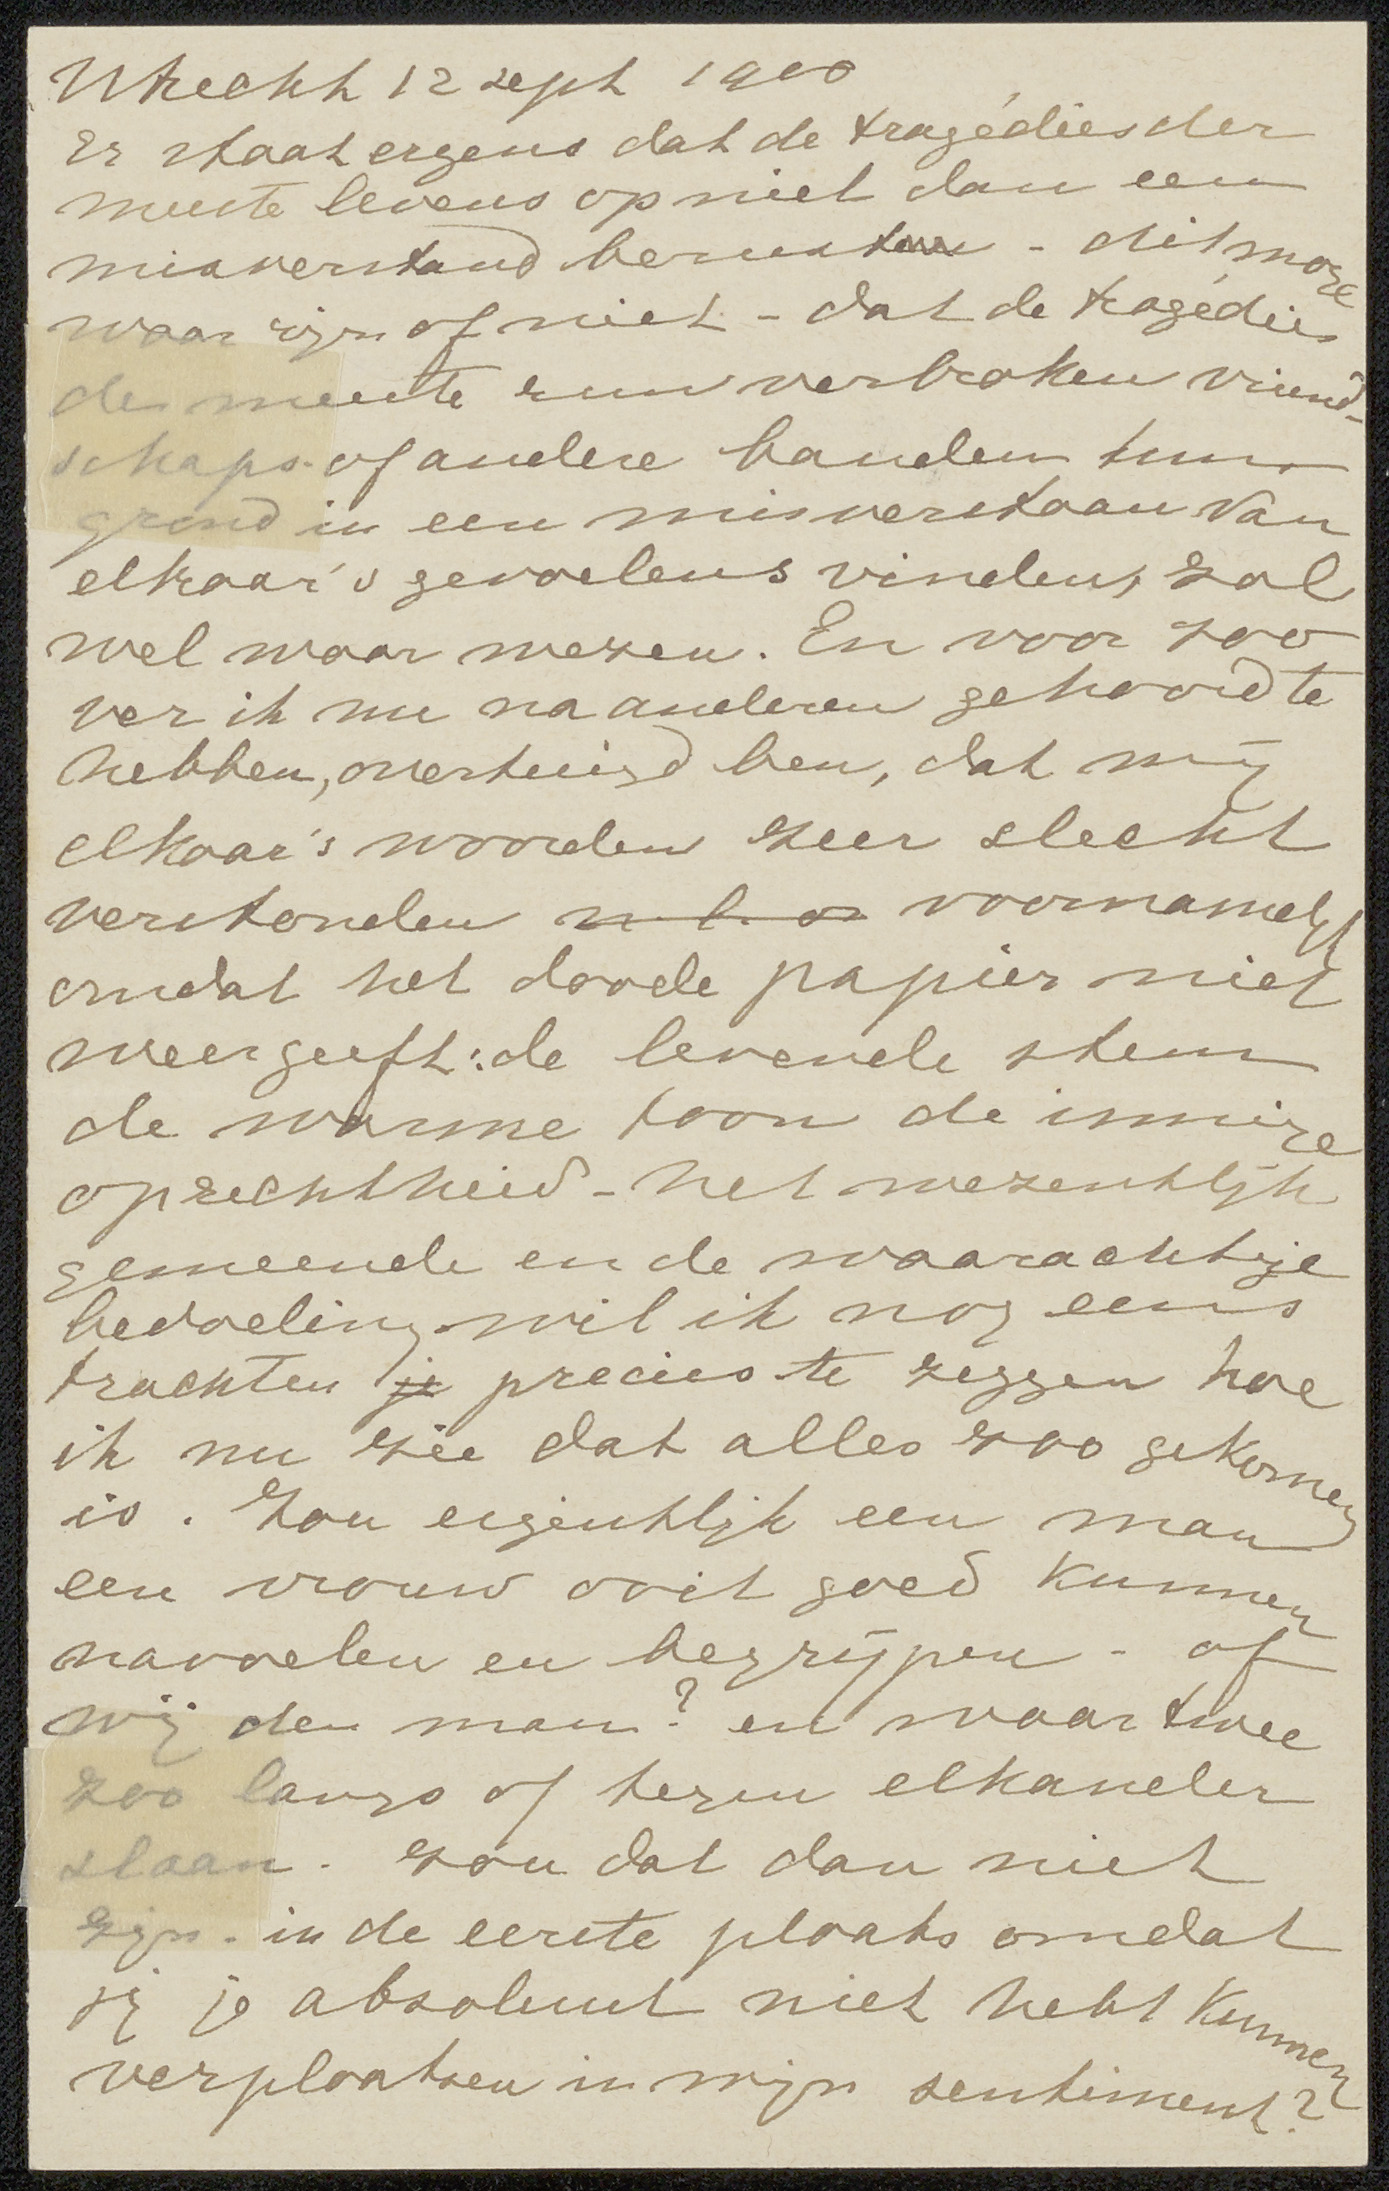 Utrecht 12 sept 1900
Er staat ergens dat de tragédies der
meeste levens op niet dan een
misverstand berusten - dit moge
waar zijn of niet - dat de tragédies
der meeste een verbroken vriend-
schaps- of andere banden hun
grond in een misverstaan van
elkaar's gevoelens vinden, zal
wel waar wezen. En voor zoo
ver ik nu na anderen gehoord te
hebben, overtuigd ben, dat wij
elkaar's woorden zeer slecht
verstonden n.l. o voornamelijk
omdat het doode papier niet
weergeeft: de levende stem
de warme toon de innige
oprechtheid - het wezentlijk
gemeende en de waarachtige
bedoeling wil ik nog eens
trachten je precies te zeggen hoe
ik nu zie dat alles zoo gekomen
is. Zou eigentlijk een man
een vrouw ooit goed kunnen
navoelen en begrijpen - of
wij den man? en waar twee
zoo langs of tegen elkander
slaan. zou dat dan niet
zijn. in de eerste plaats omdat
jij je absoluut niet hebt kunnen
verplaatsen in mijn sentiment?